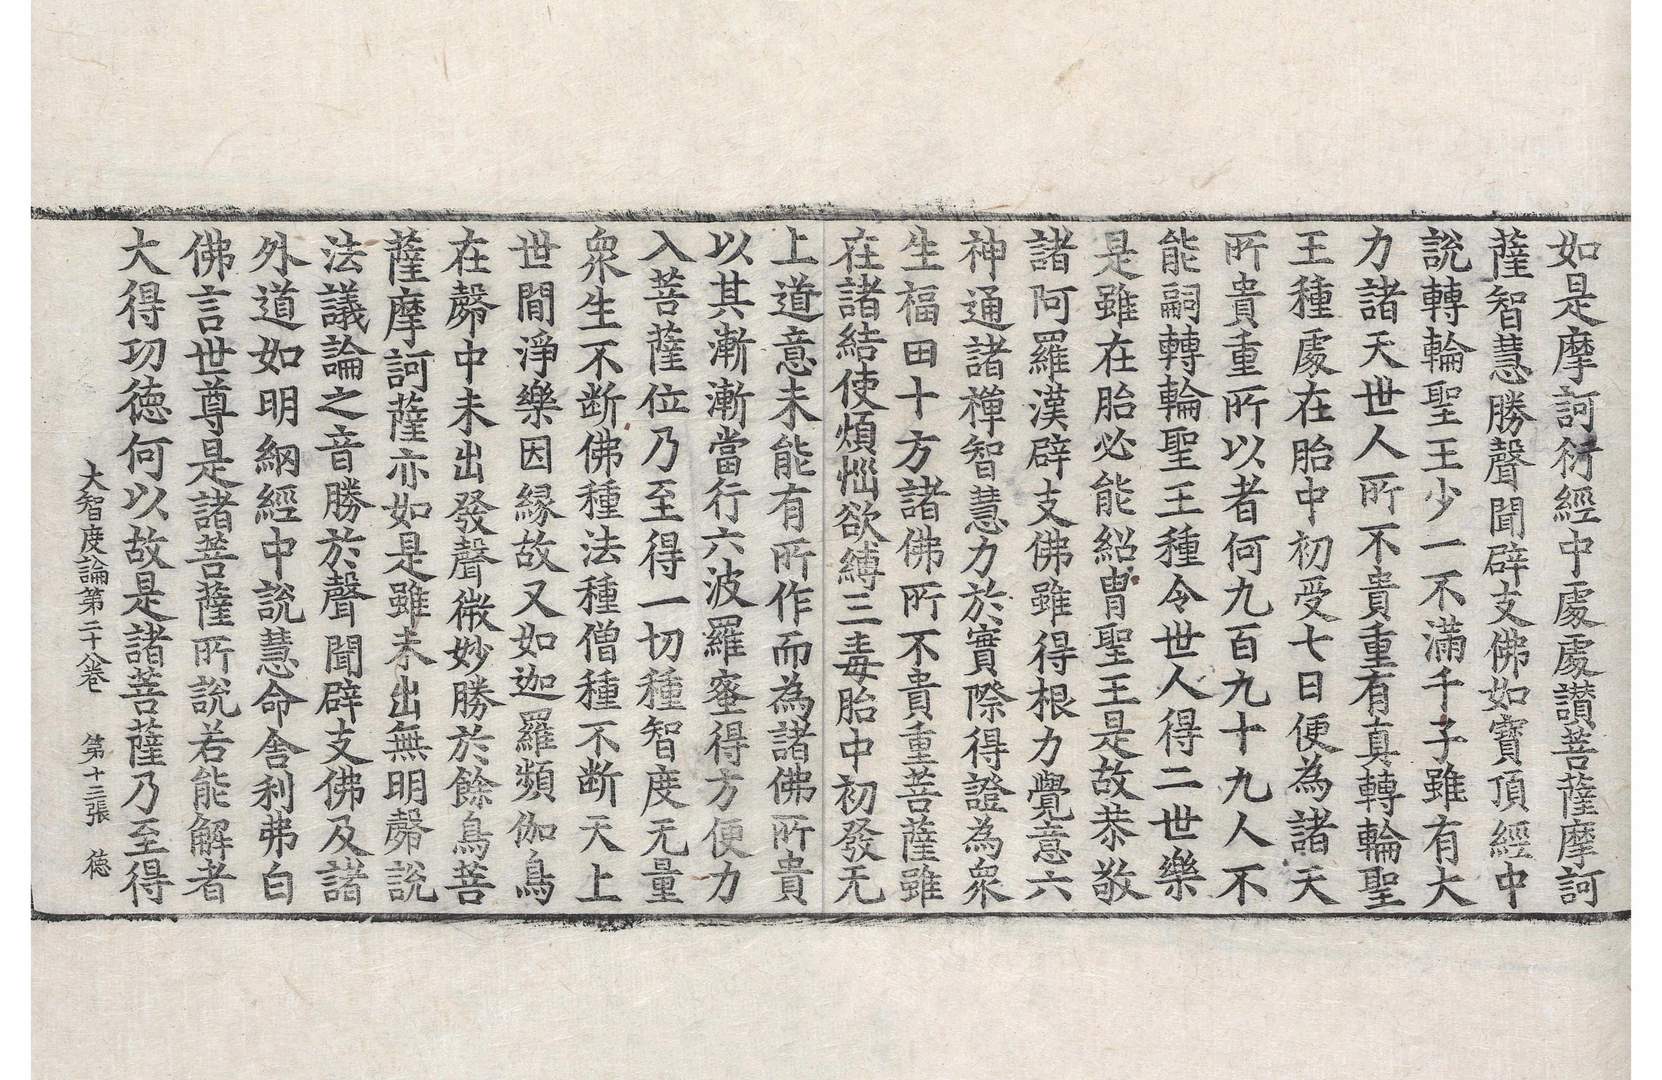 如是摩訶衍經中處處讃菩薩摩訶
薩智慧勝聲聞辟支佛如寶頂經中
說轉輪聖王少一不滿千子雖有大
力諸天世人所不貴重有真轉輪聖
王種處在胎中初受七日便為諸天
所貴重所以者何九百九十九人不
能嗣轉輪聖王種令世人得二世樂
是雖在胎必能紹胄聖王是故恭敬
諸阿羅漢辟支佛雖得根力覺意六
神通諸禪智慧力於實際得證為衆
生福田十方諸佛所不貴重菩薩雖
在諸結使煩惱欲縛三毒胎中初發无
上道意未能有所作而為諸佛所貴
以其漸漸當行六波羅蜜得方便力
入菩薩位乃至得一切種智度无量
衆生不斷佛種法種僧種不斷天上
世間淨樂因緣故又如迦羅頻伽鳥
在㲉中未出發聲微妙勝於餘鳥菩
薩摩訶薩亦如是雖未出無明㲉說
法議論之音勝於聲聞辟支佛及諸
外道如明網經中說慧命舍利弗白
佛言世尊是諸菩薩所說若能解者
大得功德何以故是諸菩薩乃至得
大智度論第二十八卷 第十三張 德